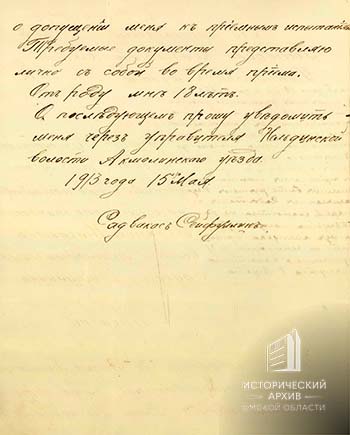 о допущеніи меня къ пріемнымъ испытаніямъ.
Требуемые документы представляю
лично съ собой во время пріема.
Отъ роду мнѣ 18 лѣтъ.
О послѣдующемъ прошу увѣдомить
меня черезъ управителя Нильдинской
волости Акмолинскаго уѣзда.
1913 года 15 Мая
Садвакасъ Сейфуллинъ.
ИСТОРИЧЕСКИЙ
АРХИВ
ОМСКОЙ ОБЛАСТИ